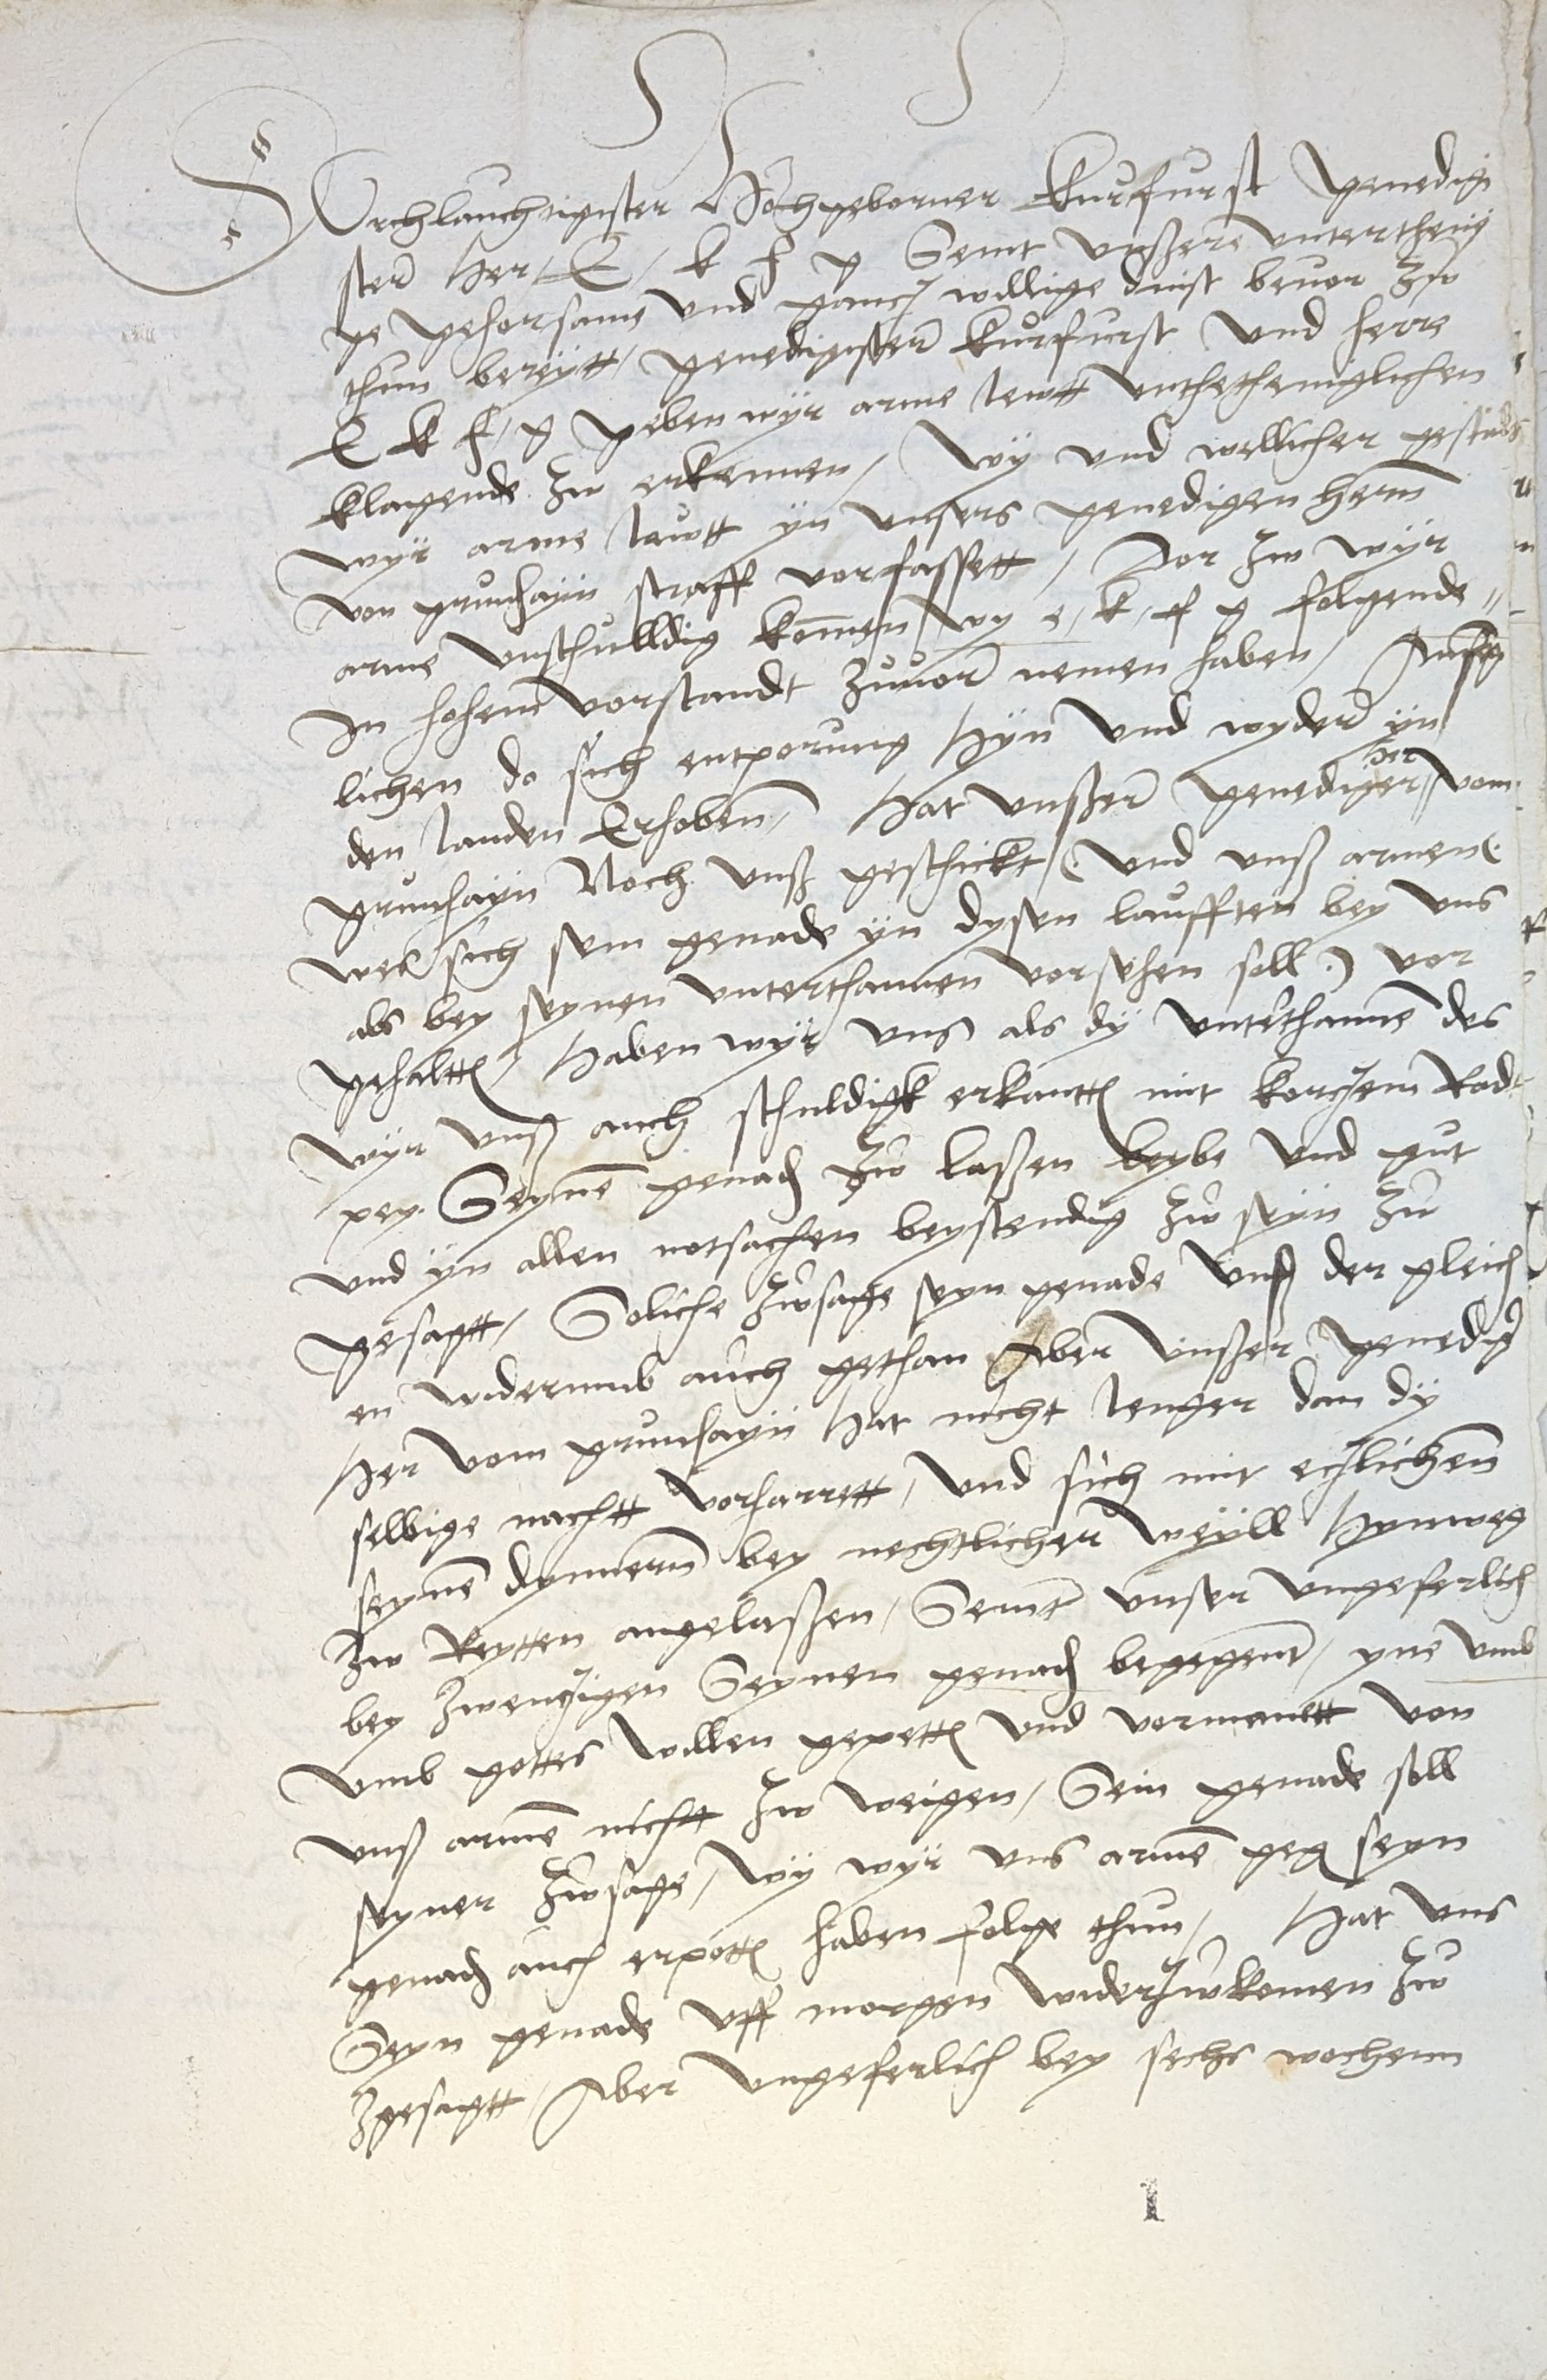 Dvrchlauchtigister Hochgeborner Kurfurst genedig
ster her E k f g Seint vnßere vntertheni
ge gehorsame vnd gancz willige dinst bevor zw
thun bereytt, genedigster kurfurst vnd herre
E k f g geben wyr arme lewtt vntthetheniglichen
klagende zw erkennen, wy vnd wellicher gestalt
wyr arme lawtt yn vnsers genedigen hern
von grunhayn straff vorfassett, dor zw wyr
arme vnschulldig komen, wy e, k, f g folgende
In hohem vorstandt zuuor nemen haben, Anfeng
lichen do sich entporung hyn vnd wyder yn
den landen Erhoben, Hat vnßer genediger her vom
grunhayn Noch vnß geschickt, (vnd vnß armen(
wes sich sein genade yn dysen laufften bey vns
als bey seynen vnterthannen vorsehen soll.) vor
gehaltt, Haben wyr vns als dy vnterthanne des
wyr vnß auch schuldigk erkantt mit korczem Radt
pey Seyne genad zw laßen leybe vnd gut
vnd yn allen notsachen beystendig zw seyn zw
gesagtt, Soliche zwsage seyn genade vnß der gleich
en widerumb auch gethan Aber vnßer genedig
her vom grunhayn hat nicht lenger dan dy
selbige nachtt vorharrett, vnd sich mit eczlichenn
seyne dynnern bey nechtlicher weyll hynweg
zw Reytten angelaßen, Seint vnser vngeferlich
bey zwenczigen Seynen genad begegent, yne vmb
vmb gottes willen gepett vnd vormanett von
vnß arme nichtt zw weigen, Sein genade soll
seyner zwsage, wy wyr vns arme geg seyn
genad auch erpott haben folge thun, Hat vns
Seyn genade vff morgen widerzwkomen zw
zgesagtt, Aber vngeferlich bey sechs wochenn
1